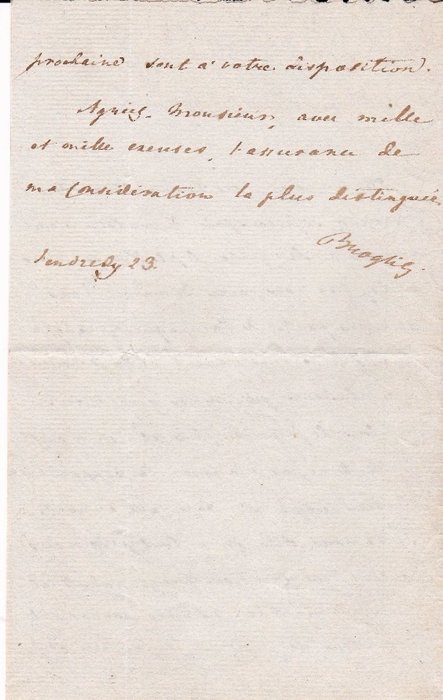 prochaine sont à votre disposition.
Agréez, Monsieur, avec mille
et mille excuses, l'assurance de
ma considération la plus distinguée.
Broglie
Vendredy 23.